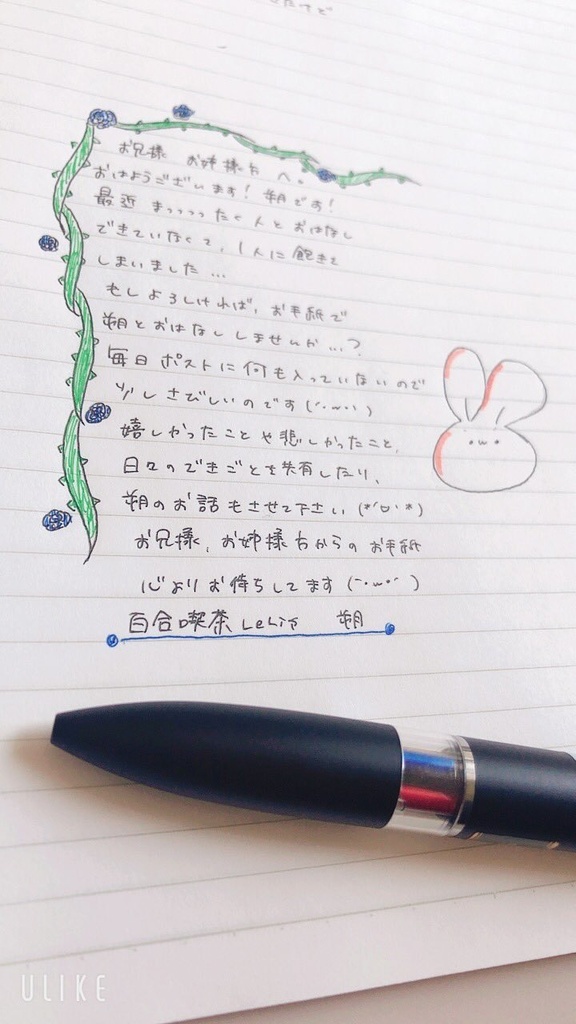 だけど
お兄様 お姉様方へ。
おはようございます！朔です！
最近 まっっっったく人とおはなし
できていなくて、1人に飽きて
しまいました…
もしよろしければ、お手紙で
朔とおはなししませんか…？
毎日ポストに何も入っていないので
少しさびしいのです(´･ω･`)
嬉しかったことや悲しかったこと、
日々のできごとを共有したり、
朔のお話もさせて下さい(*'▽'*)
お兄様、お姉様方からのお手紙
心よりお待ちしてます(´･ω･`)
百合喫茶 Lelis 朔
ULIKE